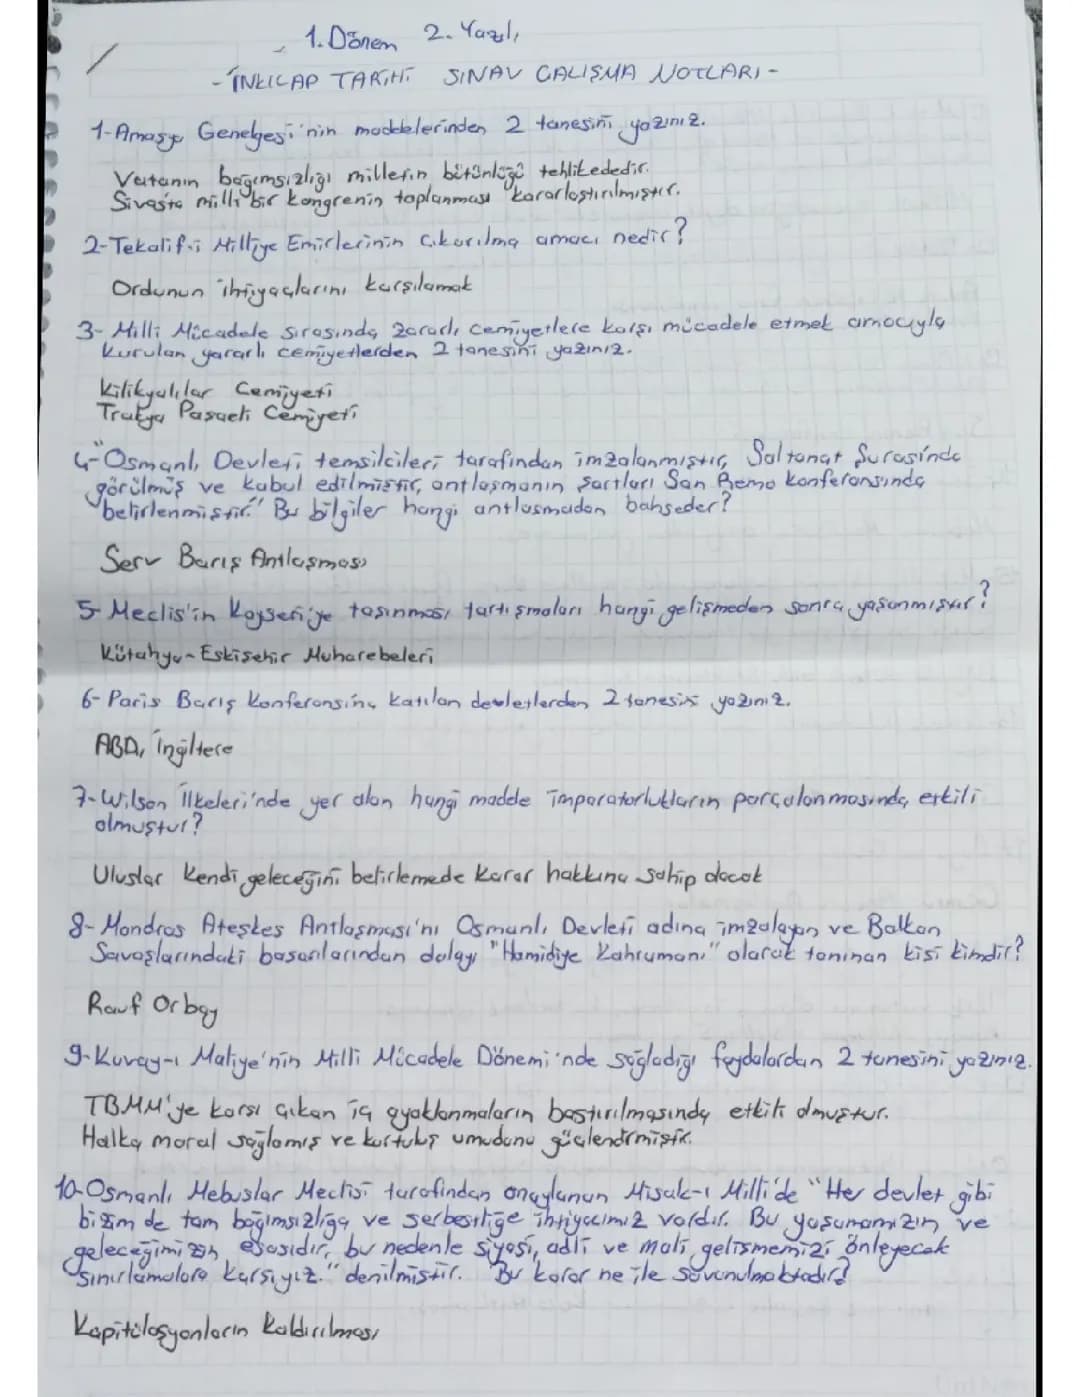 1. Dönem 2. Yazılı
- İNKILAP TARİHİ SINAV ÇALIŞMA NOTLARI -
1- Amasya Genelgesi'nin maddelerinden 2 tanesini yazınız.
Vatanın bağımsızlığı milletin bütünlüğü tehlikededir.
Sivasta milli bir kongrenin toplanması kararlaştırılmıştır.
2- Tekalif-i Milliye Emirlerinin çıkarılma amacı nedir?
Ordunun ihtiyaçlarını karşılamak
3- Milli Mücadele sırasında zararlı cemiyetlere karşı mücadele etmek amacıyla
kurulan yararlı cemiyetlerden 2 tanesini yazınız.
Kilikyalılar Cemiyeti
Trakya Paşaeli Cemiyeti
4- "Osmanlı Devleti temsilcileri tarafından imzalanmıştır, Saltanat Şurasında
görülmüş ve kabul edilmiştir, antlaşmanın şartları San Remo konferansında
belirlenmiştir." Bu bilgiler hangi antlaşmadan bahseder?
Serv Barış Antlaşması
5- Meclis'in Kayseri'ye taşınması tartışmaları hangi gelişmeden sonra yaşanmıştır?
Kütahya - Eskişehir Muharebeleri
6- Paris Barış Konferansına katılan devletlerden 2 tanesini yazınız.
ABD, İngiltere
7- Wilson İlkeleri'nde yer alan hangi madde imparatorlukların parçalanmasında etkili
olmuştur?
Uluslar kendi geleceğini belirlemede karar hakkına sahip olacak
8- Mondros Ateşkes Antlaşması'nı Osmanlı Devleti adına imzalayan ve Balkan
Savaşlarındaki başarılarından dolayı "Hamidiye Kahramanı" olarak tanınan kişi kimdir?
Rauf Orbay
9- Kuvay-ı Maliye'nin Milli Mücadele Dönemi'nde sağladığı faydalardan 2 tanesini yazınız.
TBMM'ye karşı çıkan iç ayaklanmaların bastırılmasında etkili olmuştur.
Halka moral sağlamış ve kurtuluş umudunu güçlendirmiştir.
10- Osmanlı Mebuslar Meclisi tarafından onaylanan Misak-ı Milli'de "Her devlet gibi
bizim de tam bağımsızlığa ve serbestliğe ihtiyacımız vardır. Bu yaşamamızın ve
geleceğimizin esasıdır, bu nedenle siyasi, adli ve mali gelişmemizi önleyecek
sınırlamalara karşıyız." denilmiştir. Bu karar ne ile savunulmaktadır?
Kapitülasyonların kaldırılması